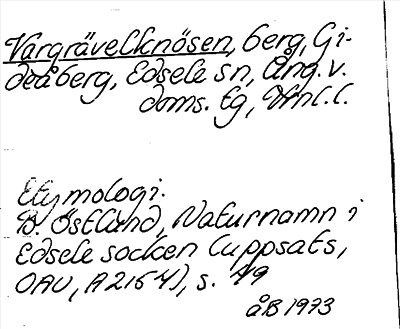 Vargrävelknösen, berg, Gi-
deåberg, Edsele sn, Ång. v.
doms. tg, Vnl. l.
Etymologi.
B. Östlund, Naturnamn i
Edsele socken (uppsats,
OAU, A2164), s. 79
åB 1973